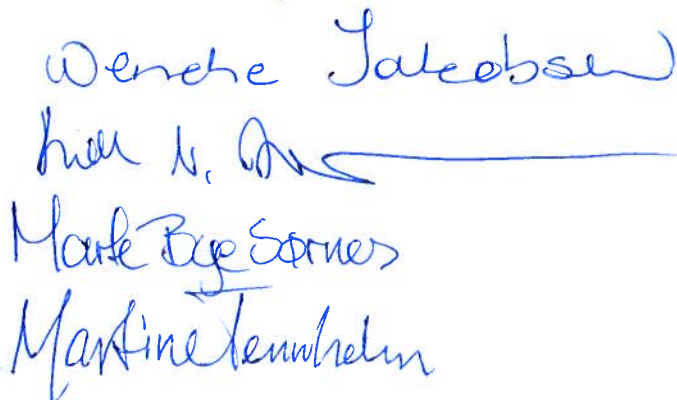 Wenche Jakobsen
N.
Marte Bye Sørnes
Martine Tennholm